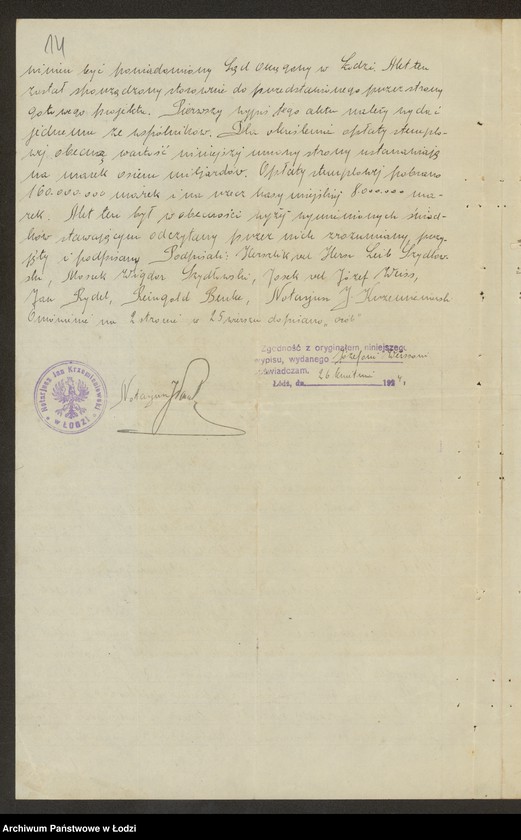 14
winien być powiadomiony Sąd Okręgowy w Łodzi. Akt ten
został sporządzony stosownie do przedstawionego przez strony
gotowego projektu. Pierwszy wypis tego aktu należy wydać
jednemu ze wspólników. Dla określenia opłaty stemplo-
wej obecną wartość niniejszej umowy strony ustanawiają
na marek osiem miljardów. Opłaty stemplowej pobrano
160.000.000 marek i na rzecz kasy miejskiej 8.000.000 ma-
rek. Akt ten był w obecności wyżej wymienionych świad-
ków stawającym odczytany przez nich zrozumiany, przy-
jęty i podpisany. Podpisali: Herszlik vel Herz Leib Szydłow-
ski, Moszek Wigdor Szydłowski, Josek vel Józef Weiss,
Jan Rydel, Reingold Benke, Notarjusz J. Krzemieniewski
Omówienie na 2 stronie w 25 wierszu dopisano "
Zgodność z oryginałem niniejszego
wypisu, wydanego Józefowi Weissowi
oświadczam.
Łódź, dn. 26 kwietnia 1924 r.
Notarjusz
Notarjusz Jan Krzemieniewski
w ŁODZI
Archiwum Państwowe w Łodzi